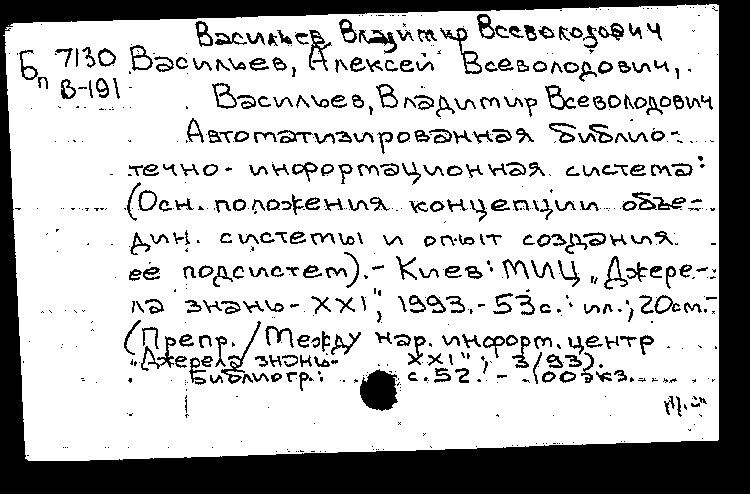 Васильев Владимир Всеволодович
Бп 7130 Васильев, Алексей Всеволодович,
В-191 Васильев, Владимир Всеволодович
Автоматизированная библио-
течно-информационная система:
(Осн. положения концепции объе-
дин. системы и опыт создания
ее подсистем).- Киев: МИЦ „Джере-
ла знань-XXI", 1993.-53с.: ил.; 20см.-
(Препр./Междунар. информ. центр
„Джерела знань- XXI"; 3/93).
Библиогр.: с.52. - 100экз.